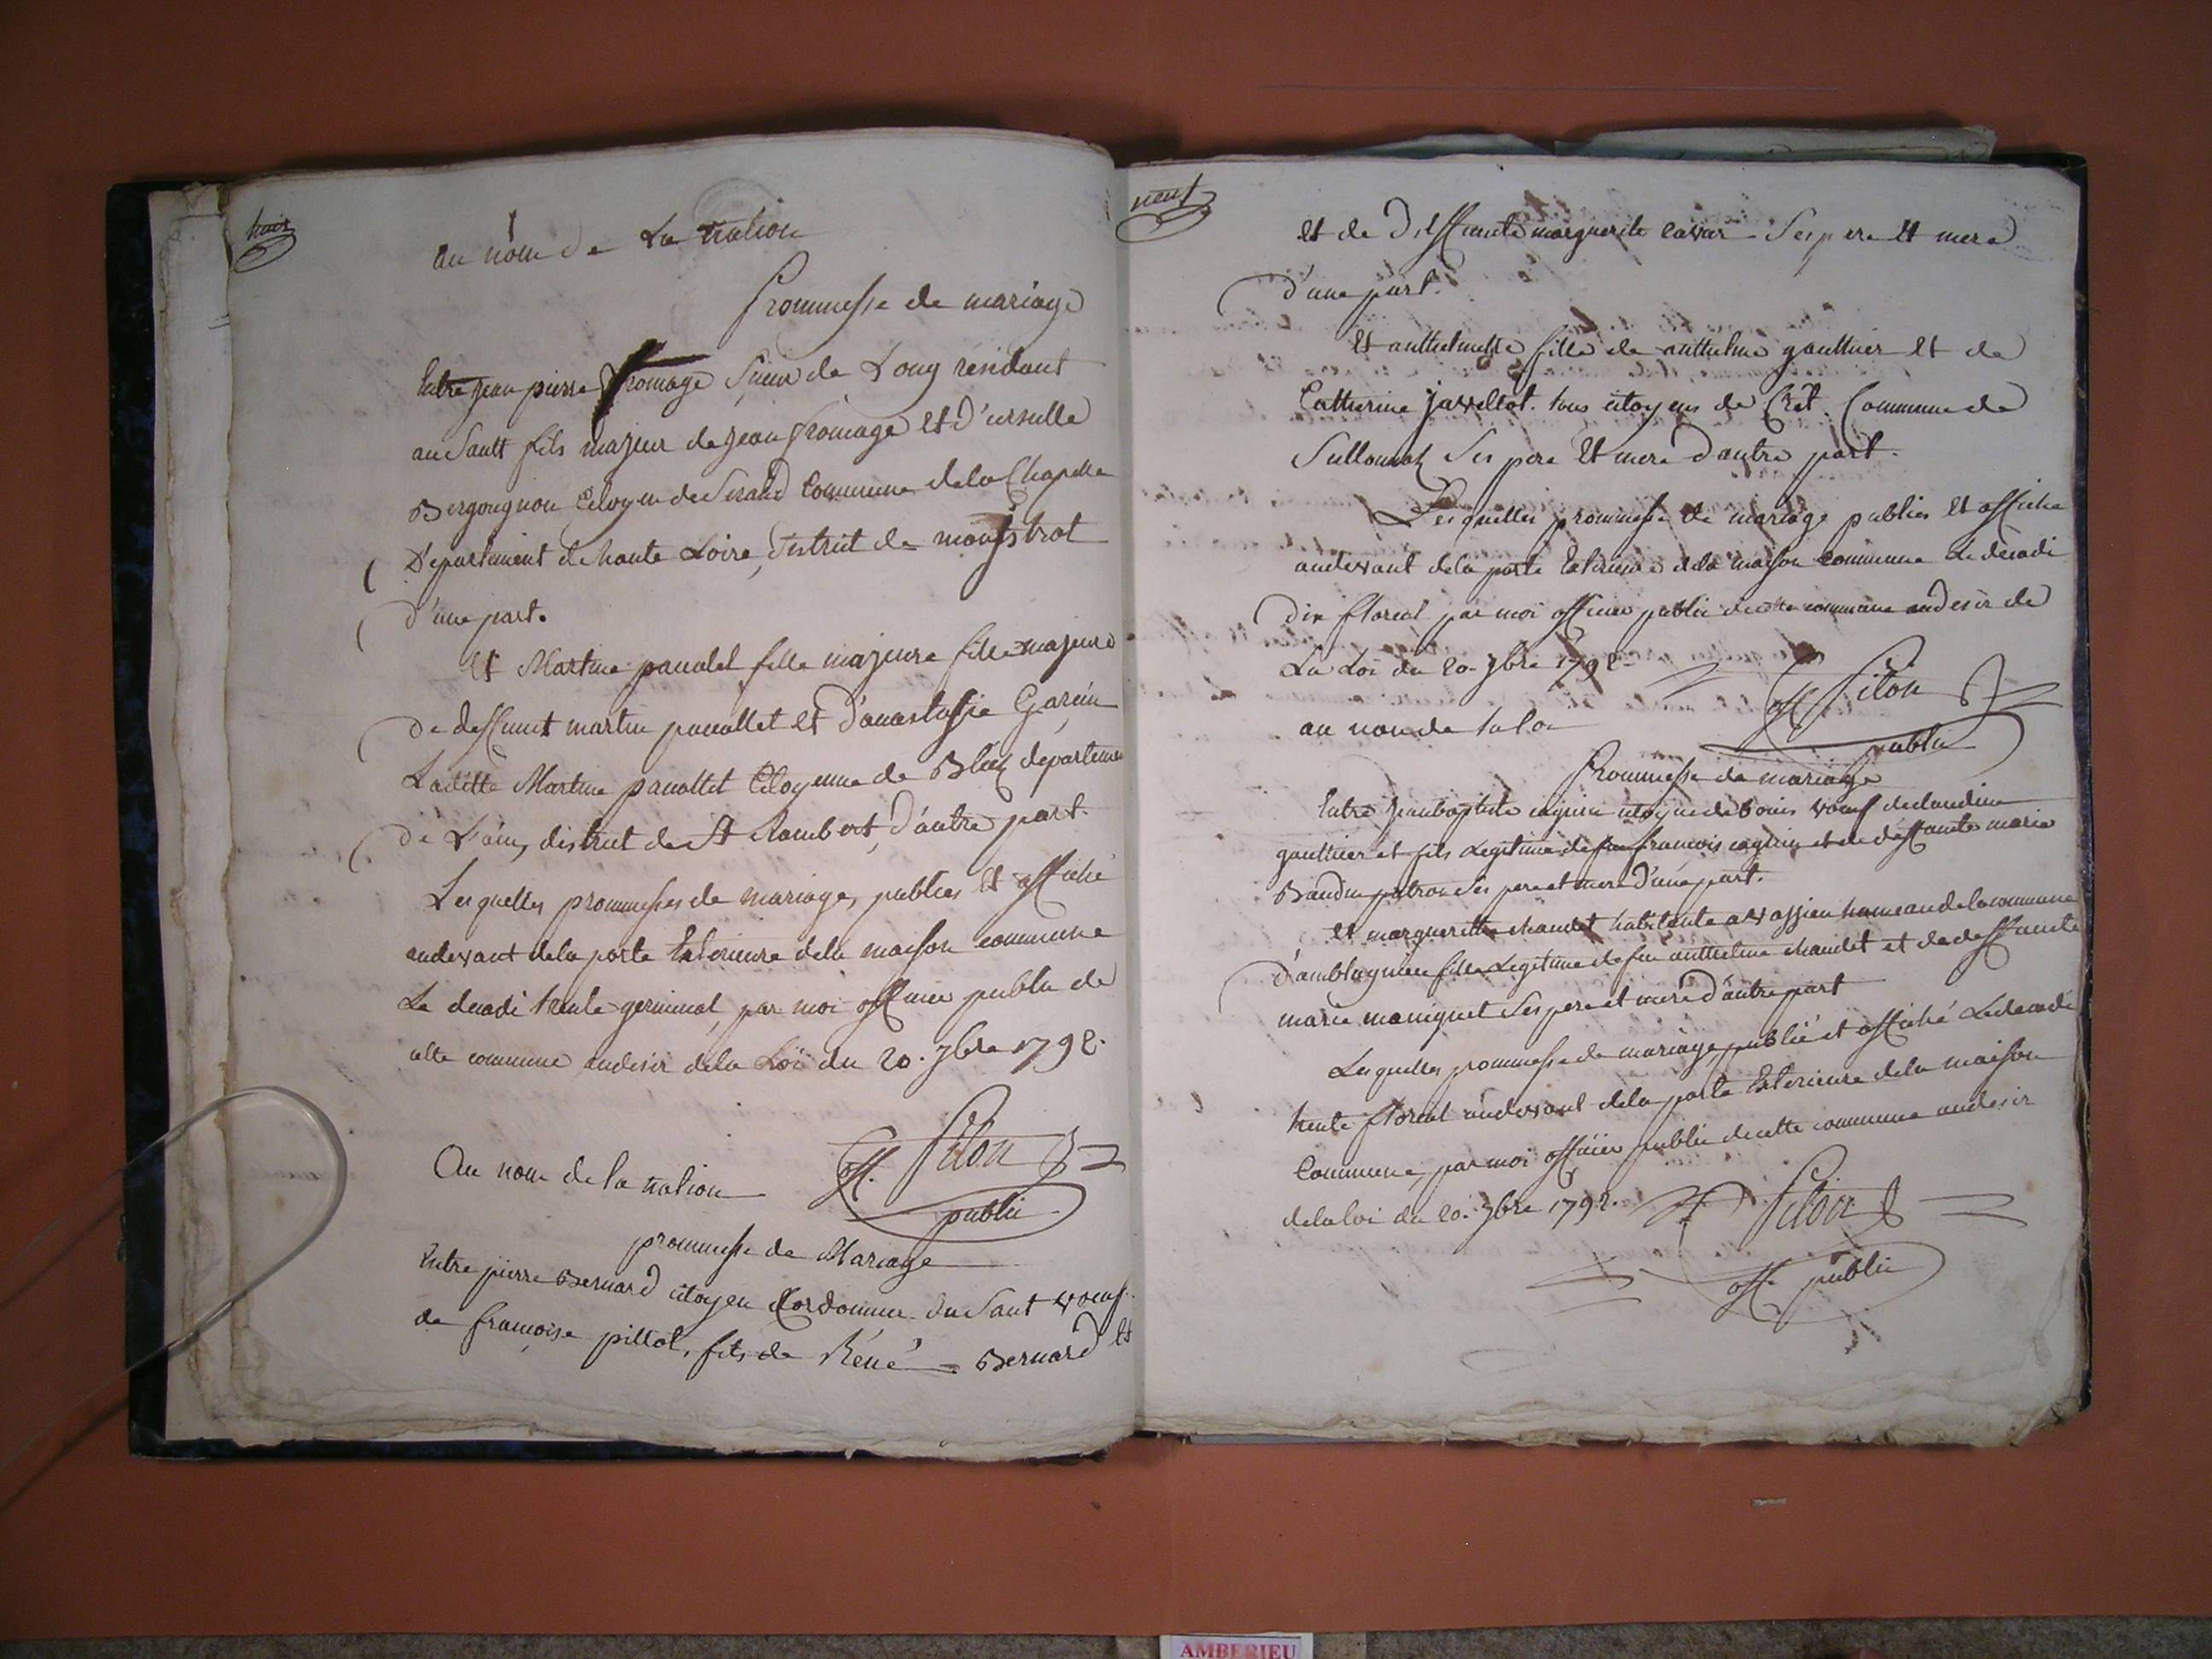 trois
au nom de La nation
Prommesse de mariage
Entre jean pierre fromage sieur de Long résidant
au Sault fils majeur de jean fromage et d'ursulle
Bergougnon Citoyen de commune de la Chapelle
Département de haute Loire, district de monistrol
d'une part.
et Martine panalet fille majeure fille majeure
de deffunct martin panallet et d'anastassie Garin
Laditte Martine panallet Citoyenne de département
de L'ain, district de St Rambert, d'autre part.
Lesquelles prommesses de mariage, publiés et affiché
audevant dela porte Exterieure dela maison commune
Le decadi trente germinal, par moi officier public de
cette commune audesir dela Loi du 20. 7bre 1792.
Au nom de la nation off. Pilon
public
prommesse de Mariage
Entre pierre Bernard citoyen Cordonnier du Saut voeuf
de françoise pillot, fils de Réné Bernard et
neuf
et de deffuncte marguerite Ses pere et mere
d'une part.
Et anthelmette fille de anthelme gauthier et de
Catherine javellot. tous citoyens de Cret. Commune de
Ses pere et mere d'autre part.
Lesquelles prommesse de mariage publies et affiche
audevant dela porte Exterieure dela maison commune Le decadi
dix floreal par moi officier public de cette commune audesir de
La Loi du 20. 7bre 1792
au nom de la loi off Pilon
public
Prommesse de mariage
Entre jeanbaptiste citoyen de voeuf de claudine
gauthier et fils Legitime de feu francois et de deffuncte marie
Baudin patron ses pere et mere d'une part.
et margueritte chaudet habitante a vassieu hameau de la commune
d'amblagnieu fille Legitime de feu anthelme chaudet et de deffuncte
marie maniguet ses pere et mere d'autre part
Lesquelles prommesse de mariage, publié et affiché Le decadi
trente floreal audevant dela porte Exterieure dela maison
Commune, par moi officier public de cette commune audesir
dela loi du 20. 7bre 1792. Pilon
off. public
AMBERIEU